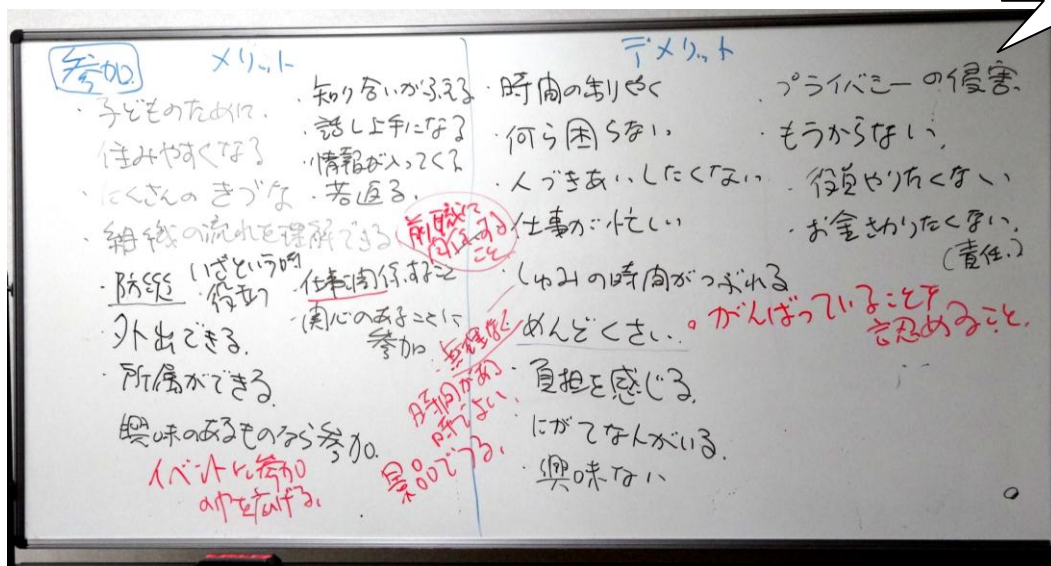 参加
メリット
・子どものために.
住みやすくなる
・たくさんのきづな
・組織の流れを理解できる
・防災 いざという時
役立つ
外出できる.
・所属ができる.
興味のあるものなら参加.
イベントに参加
の巾を広げる.
・知り合いがふえる
・話し上手になる
・情報が入ってくる
・若返る.
前職に
関係ある
こと
仕事に関係すること
・関心のあることに
参加
デメリット
・時間の制やく
・何ら困らない.
・人づきあいしたくない
仕事が忙しい
・しゅみの時間がつぶれる
めんどくさい.
無理なく
時間がある
時でよい.
景品でつる.
・負担を感じる.
にがてな人がいる.
・興味ない
・プライバシーの侵害.
・もうからない.
・役員やりたくない
・お金さわりたくない.
(責任.)
。がんばっていることを
認めること.